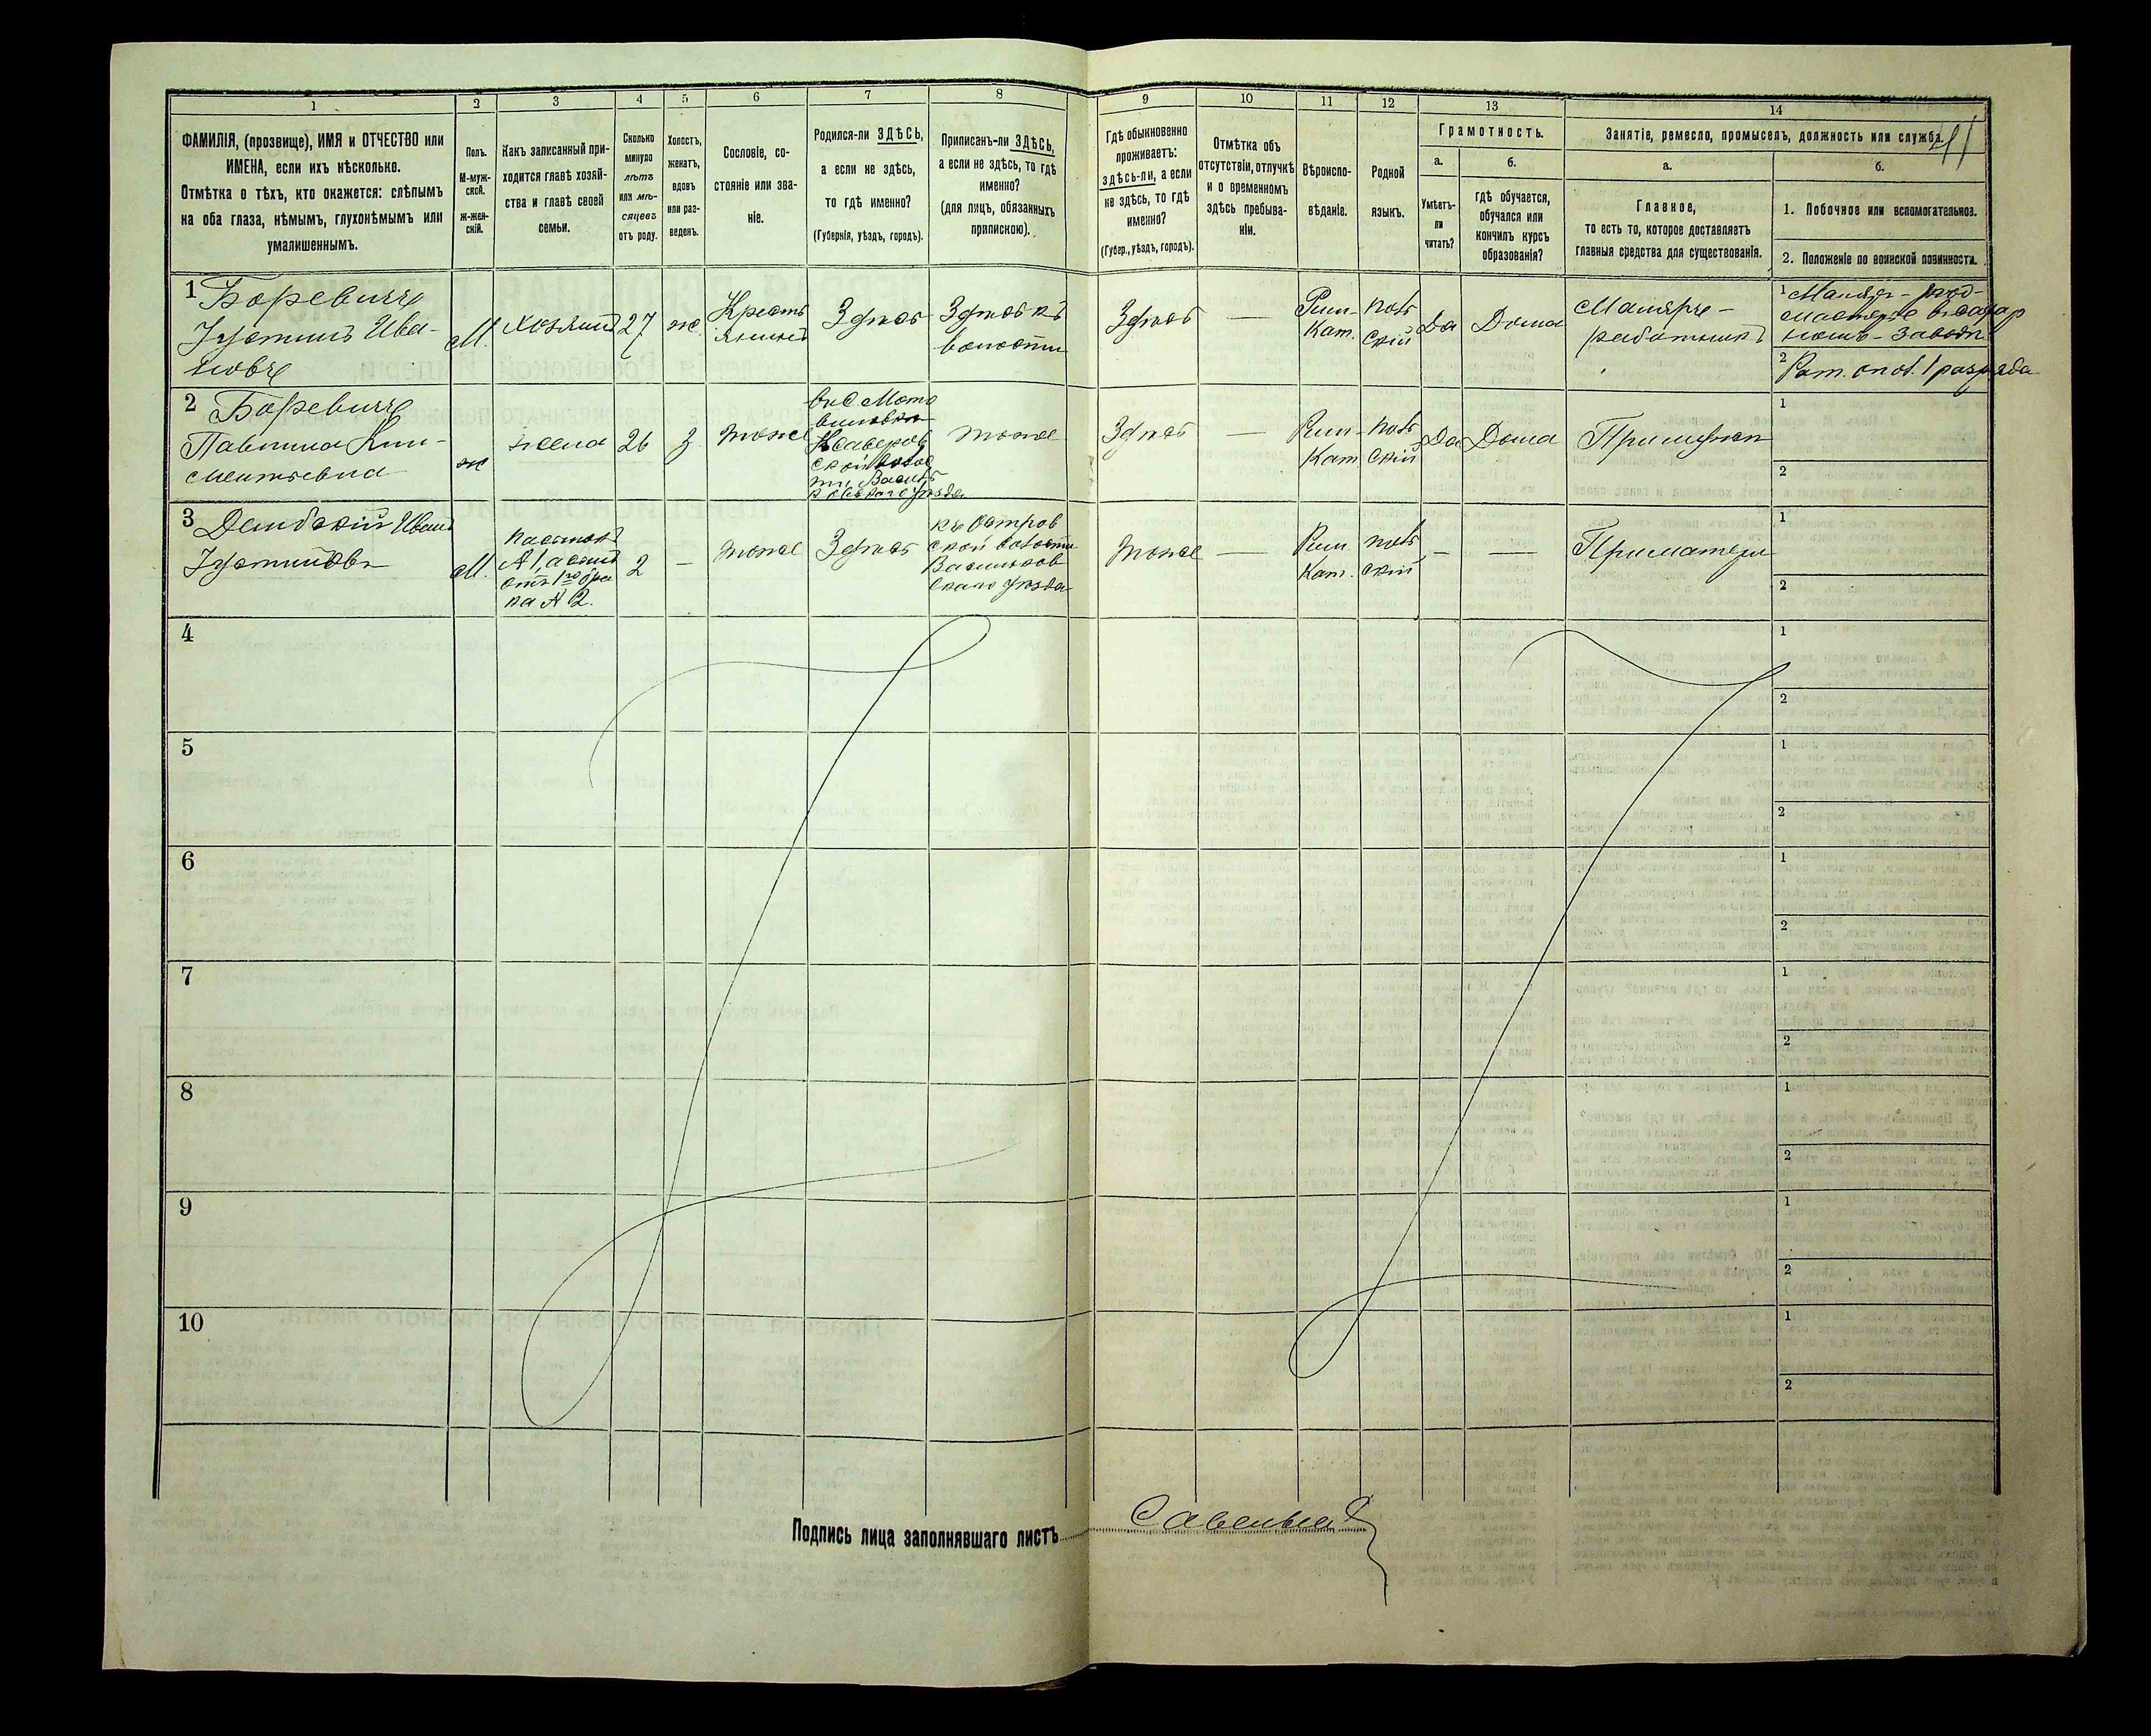 1
2
3
4
5
6
7
8
9
10
11
12
13
14
ФАМИЛІЯ, (прозвище), ИМЯ и ОТЧЕСТВО или
ИМЕНА, если ихъ нѣсколько.
Отмѣтка о тѣхъ, кто окажется: слѣпымъ
на оба глаза, нѣмымъ, глухонѣмымъ или
умалишеннымъ.
Полъ.
М-муж-
ской.
ж-жен-
скій.
Какъ записанный при-
ходится главѣ хозяй-
ства и главѣ своей
семьи.
Сколько
минуло
лѣтъ
или мѣ-
сяцевъ
отъ роду.
Холостъ,
женатъ,
вдовъ
или раз-
веденъ.
Сословіе, со-
стояніе или зва-
ніе.
Родился-ли ЗДѢСЬ,
а если не здѣсь,
то гдѣ именно?
(Губернія, уѣздъ, городъ).
Приписанъ-ли ЗДѢСЬ,
а если не здѣсь, то гдѣ
именно?
(для лицъ, обязанныхъ
припискою).
Гдѣ обыкновенно
проживаетъ:
здѣсь-ли, а если
не здѣсь, то гдѣ
именно?
(Губер., уѣздъ, городъ).
Отмѣтка объ
отсутствіи, отлучкѣ
и о временномъ
здѣсь пребыва-
ніи.
Вѣроиспо-
вѣданіе.
Родной
языкъ.
Грамотность.
а.
Умѣетъ-
ли
читать?
б.
гдѣ обучается,
обучался или
кончилъ курсъ
образованія?
Занятіе, ремесло, промыселъ, должность или служба.
а.
Главное,
то есть то, которое доставляетъ
главныя средства для существованія.
б.
1. Побочное или вспомогательное.
2. Положеніе по воинской повинности.
1 Боревичъ
Густинъ Ива-
новъ
М.
хозяинъ
27
ж.
Кресть
янинъ
Здѣсь
Здѣсь къ
волости
Здѣсь
—
Рим-
Кат.
поль
скій
Да
Дома
Маляръ-
работникъ
1 Маляръ-под-
мастерье въ сахар
номъ-заводѣ
2 Рат. опол. 1 разряда
2 Боревичъ
Павлина Кли-
ментьевна
ж
жена
26
З.
тоже
въ с Мото
виловкѣ
Ксаверов
ской волос
ти Василь
ковскаго уѣзда
тоже
Здѣсь
—
Рим-
Кат
поль
скій
Да
Дома
При мужѣ
1
2
3 Дембскій Иванъ
Густиновъ
М.
пасынокъ
№1, а сынъ
отъ 1го бра
ка №2.
2
—
тоже
Здѣсь
къ Остров
ской волости
Васильков
скаго уѣзда
тоже
—
Рим
Кат.
поль
скій
—
—
При матери
1
2
4
1
2
5
1
2
6
1
2
7
1
2
8
1
2
9
1
2
10
1
2
Подпись лица заполнявшаго листъ